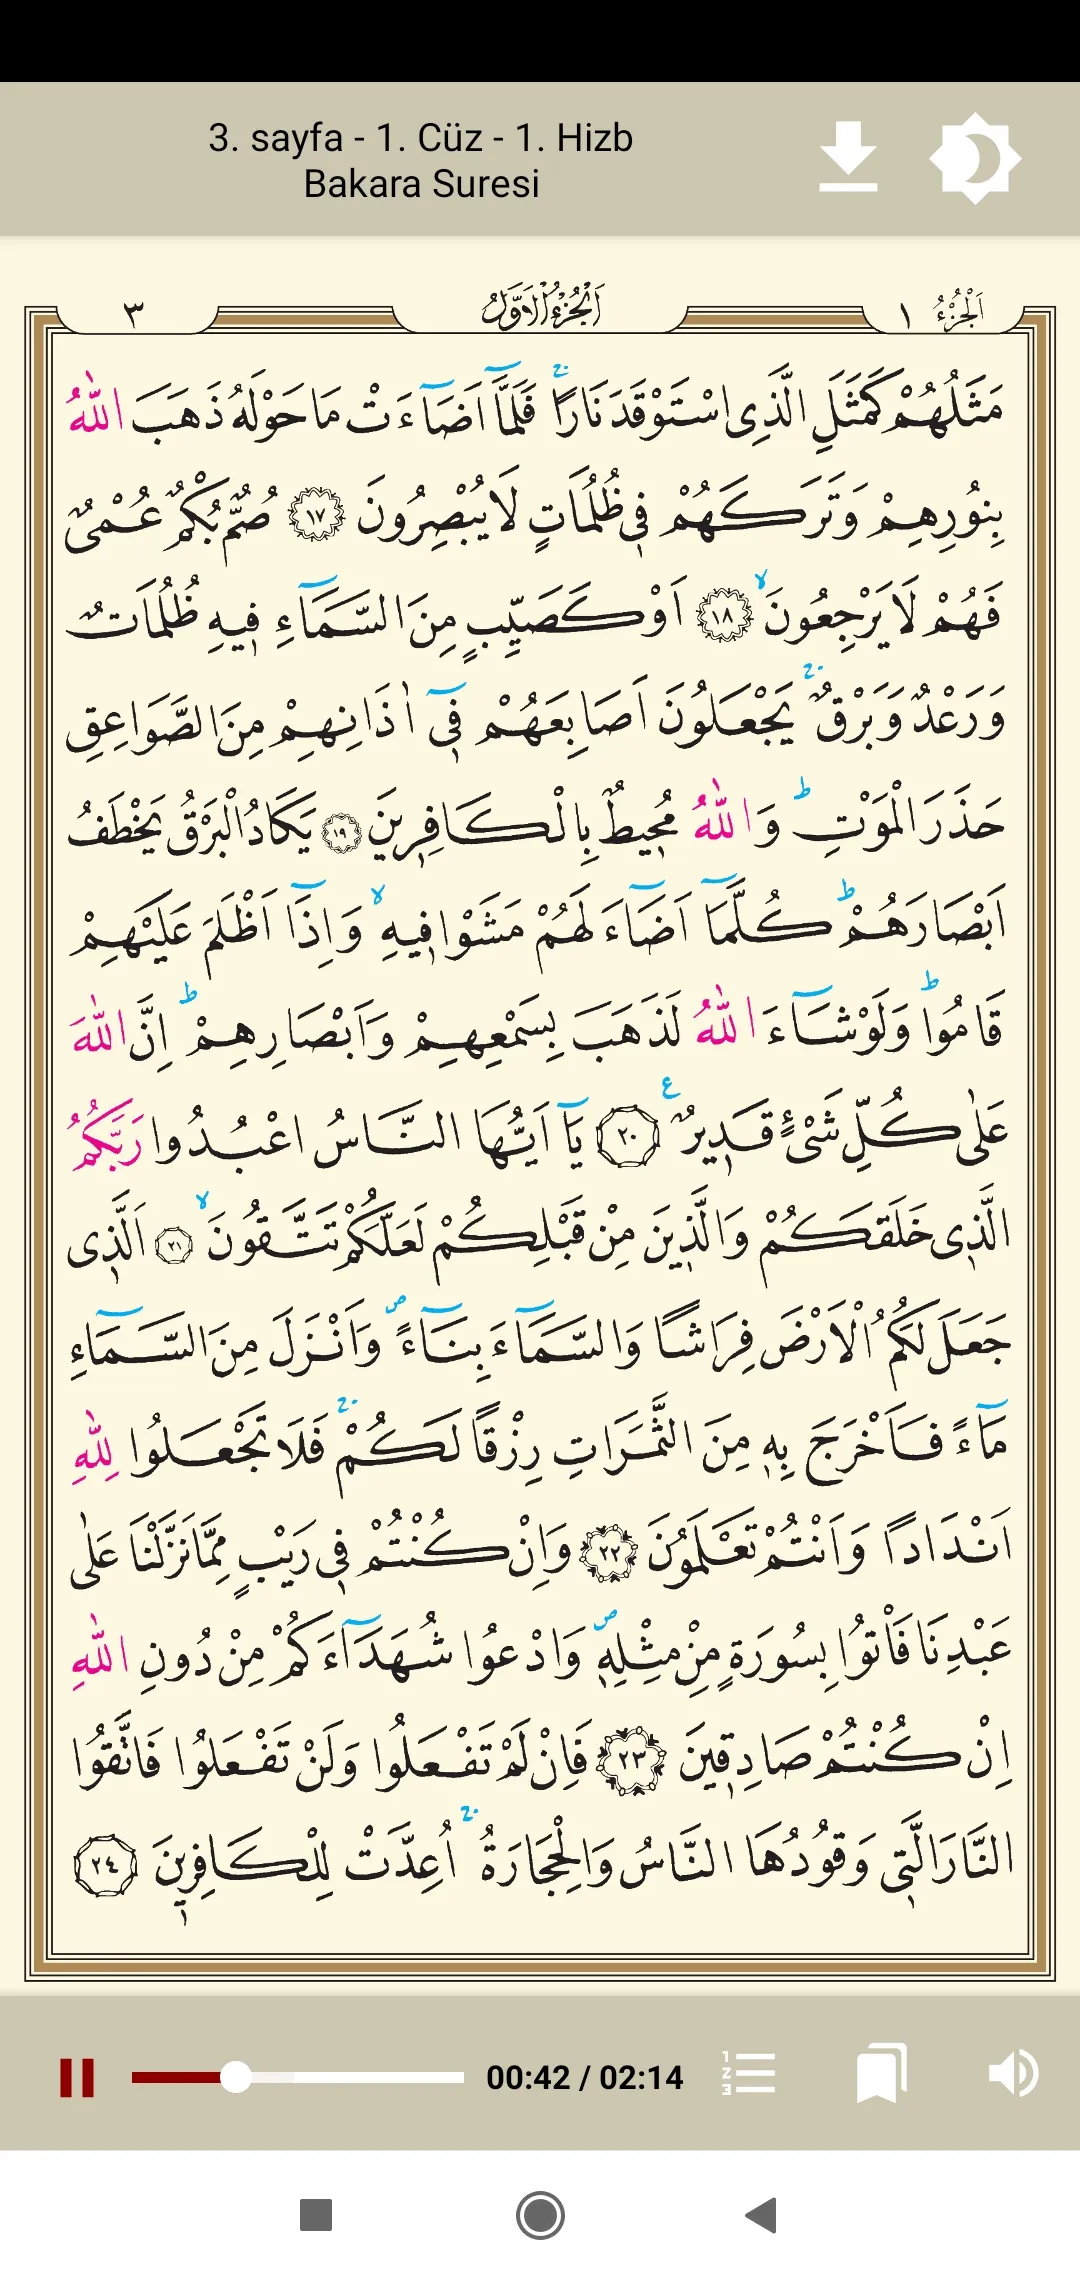 3. sayfa - 1. Cüz - 1. Hizb
Bakara Suresi
اَلْجُزْءُ ١
اَلْجُزْءُ الْاَوَّلُ
٣
مَثَلُهُمْ كَمَثَلِ الَّذِى اسْتَوْقَدَ نَارًاۚ فَلَمَّٓا اَضَٓاءَتْ مَا حَوْلَهُ ذَهَبَ اللّٰهُ
بِنُورِهِمْ وَتَرَكَهُمْ ف۪ى ظُلُمَاتٍ لَا يُبْصِرُونَ ﴿١٧﴾ صُمٌّ بُكْمٌ عُمْىٌ
فَهُمْ لَا يَرْجِعُونَۙ ﴿١٨﴾ اَوْ كَصَيِّبٍ مِنَ السَّمَٓاءِ ف۪يهِ ظُلُمَاتٌ
وَرَعْدٌ وَبَرْقٌۚ يَجْعَلُونَ اَصَابِعَهُمْ ف۪ٓى اٰذَانِهِمْ مِنَ الصَّوَاعِقِ
حَذَرَ الْمَوْتِۜ وَاللّٰهُ مُح۪يطٌ بِالْكَافِر۪ينَ ﴿١٩﴾ يَكَادُ الْبَرْقُ يَخْطَفُ
اَبْصَارَهُمْۜ كُلَّمَٓا اَضَٓاءَ لَهُمْ مَشَوْا ف۪يهِۙ وَاِذَٓا اَظْلَمَ عَلَيْهِمْ
قَامُواۜ وَلَوْ شَٓاءَ اللّٰهُ لَذَهَبَ بِسَمْعِهِمْ وَاَبْصَارِهِمْۜ اِنَّ اللّٰهَ
عَلٰى كُلِّ شَىْءٍ قَد۪يرٌ ع ﴿٢٠﴾ يَٓا اَيُّهَا النَّاسُ اعْبُدُوا رَبَّكُمُ
الَّذ۪ى خَلَقَكُمْ وَالَّذ۪ينَ مِنْ قَبْلِكُمْ لَعَلَّكُمْ تَتَّقُونَۙ ﴿٢١﴾ اَلَّذ۪ى
جَعَلَ لَكُمُ الْاَرْضَ فِرَاشًا وَالسَّمَٓاءَ بِنَٓاءًۖ وَاَنْزَلَ مِنَ السَّمَٓاءِ
مَٓاءً فَاَخْرَجَ بِه۪ مِنَ الثَّمَرَاتِ رِزْقًا لَكُمْۚ فَلَا تَجْعَلُوا لِلّٰهِ
اَنْدَادًا وَاَنْتُمْ تَعْلَمُونَ ﴿٢٢﴾ وَاِنْ كُنْتُمْ ف۪ى رَيْبٍ مِمَّا نَزَّلْنَا عَلٰى
عَبْدِنَا فَأْتُوا بِسُورَةٍ مِنْ مِثْلِه۪ۖ وَادْعُوا شُهَدَٓاءَكُمْ مِنْ دُونِ اللّٰهِ
اِنْ كُنْتُمْ صَادِق۪ينَ ﴿٢٣﴾ فَاِنْ لَمْ تَفْعَلُوا وَلَنْ تَفْعَلُوا فَاتَّقُوا
النَّارَ الَّت۪ى وَقُودُهَا النَّاسُ وَالْحِجَارَةُۚ اُعِدَّتْ لِلْكَافِر۪ينَ ﴿٢٤﴾
00:42 / 02:14